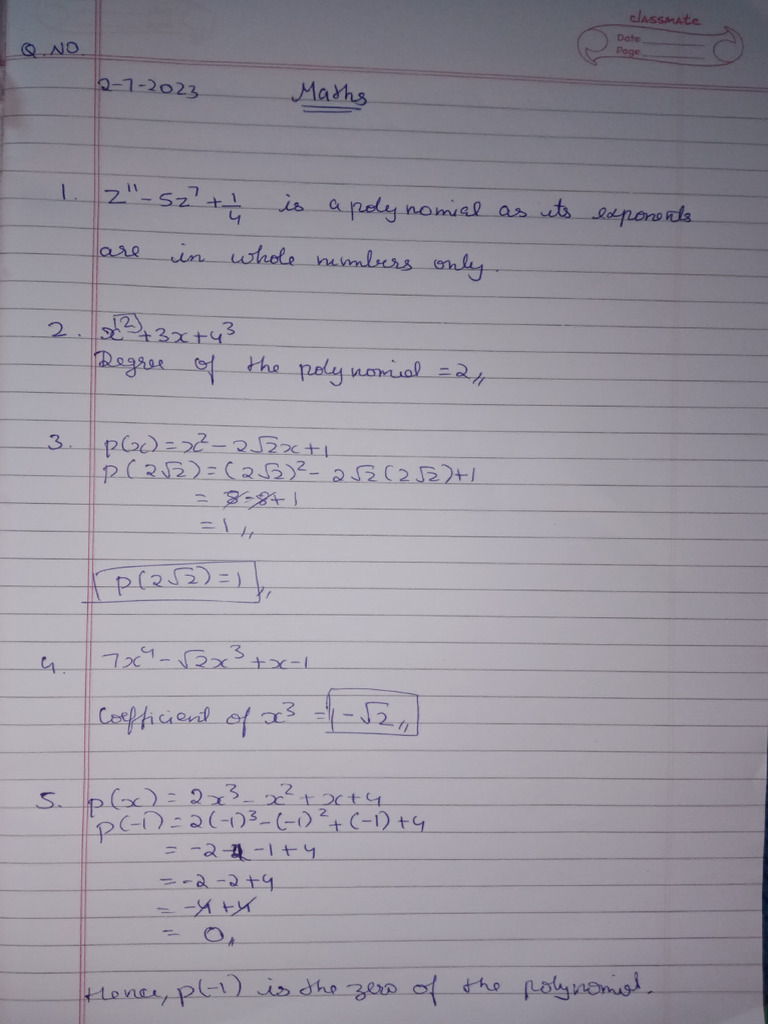 classmate
Date
Page
Q. NO.
2-7-2023 Maths
1. z¹¹ - 5z⁷ + 1/4 is a polynomial as its exponents
are in whole numbers only.
2. x² + 3x + 4³
Degree of the polynomial = 2
3. p(x) = x² - 2√2x + 1
p(2√2) = (2√2)² - 2√2(2√2) + 1
= 8 - 8 + 1
= 1
p(2√2) = 1
4. 7x⁴ - √2x³ + x - 1
Coefficient of x³ = -√2
5. p(x) = 2x³ - x² + x + 4
p(-1) = 2(-1)³ - (-1)² + (-1) + 4
= -2 - 1 - 1 + 4
= -2 - 2 + 4
= -4 + 4
= 0
Hence, p(-1) is the zero of the polynomial.